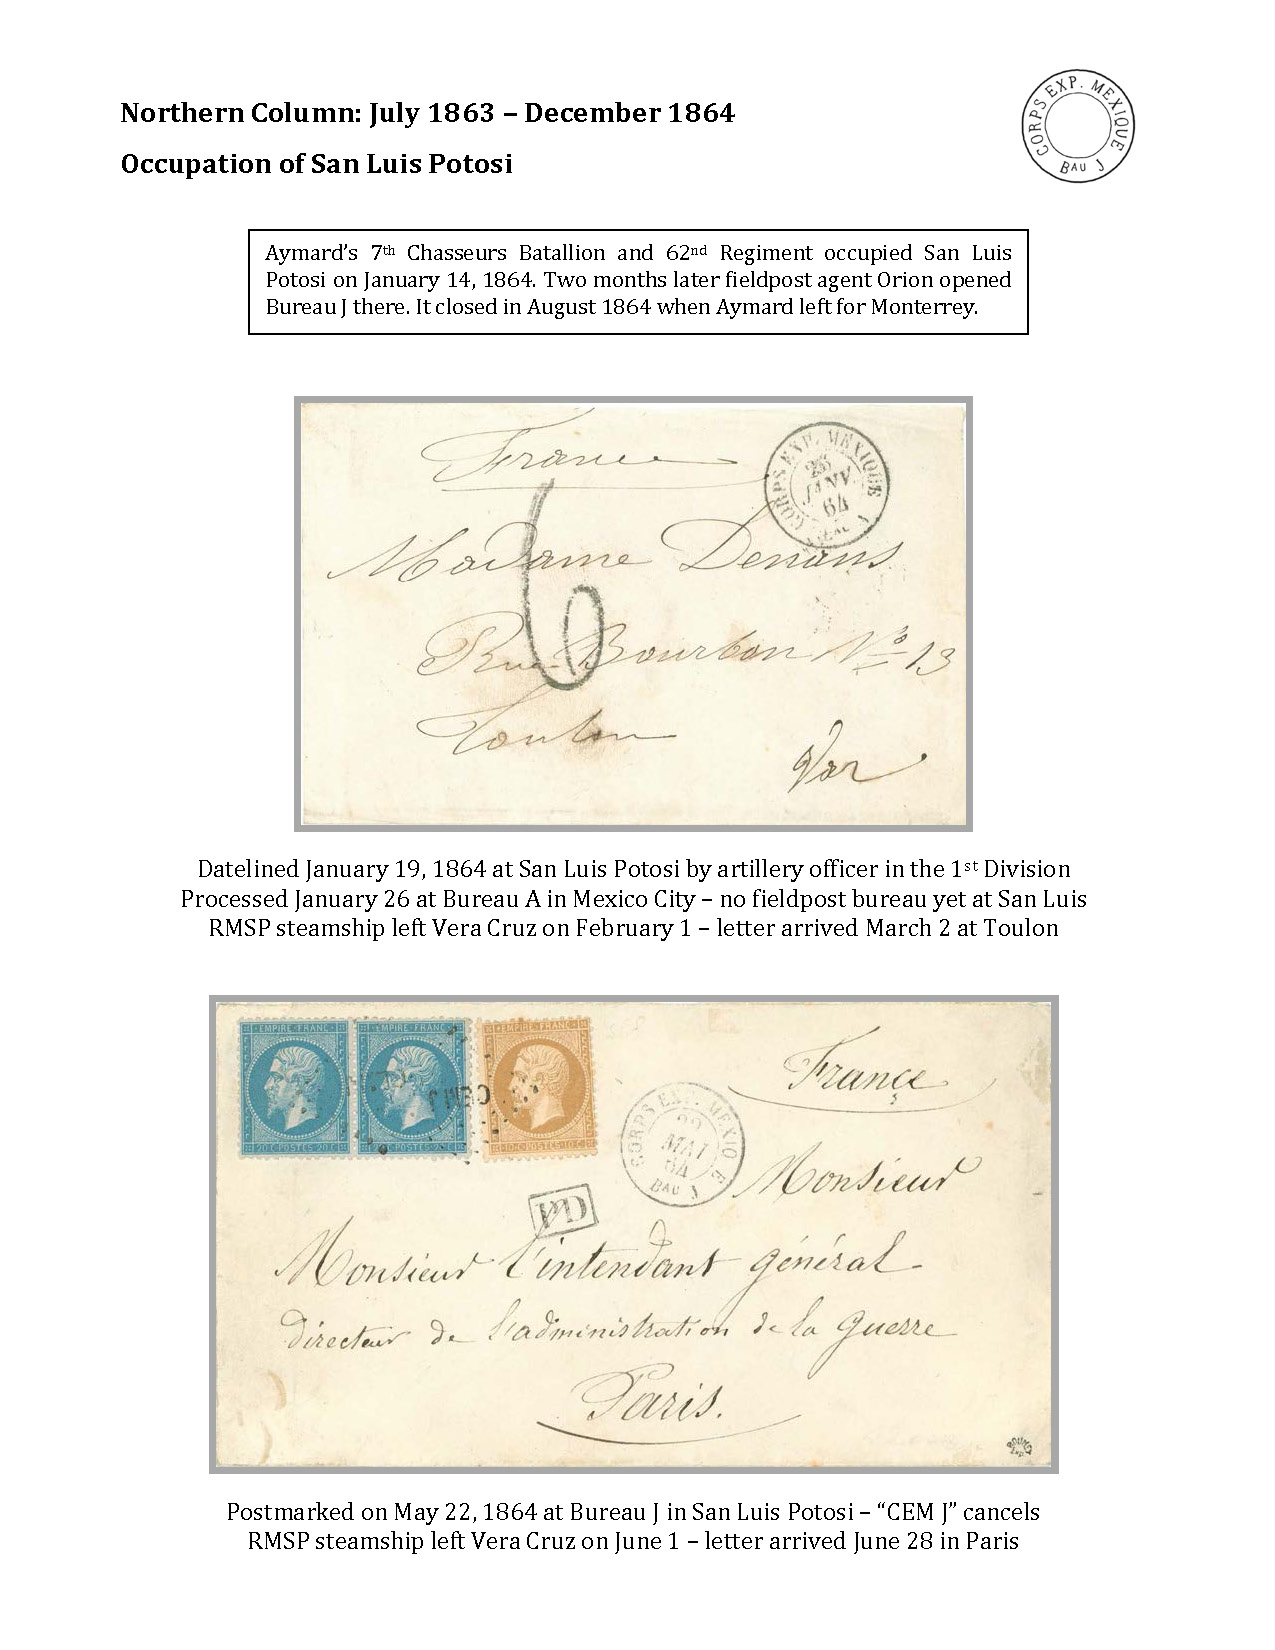 Northern Column: July 1863 – December 1864
CORPS EXP. MEXIQUE
BAU J
Occupation of San Luis Potosi
Aymard's 7th Chasseurs Batallion and 62nd Regiment occupied San Luis
Potosi on January 14, 1864. Two months later fieldpost agent Orion opened
Bureau J there. It closed in August 1864 when Aymard left for Monterrey.
France
CORPS EXP. MEXIQUE
JANV.
64
6
Madame Denans
Rue Bourbon No 13
Toulon
Var
Datelined January 19, 1864 at San Luis Potosi by artillery officer in the 1st Division
Processed January 26 at Bureau A in Mexico City – no fieldpost bureau yet at San Luis
RMSP steamship left Vera Cruz on February 1 – letter arrived March 2 at Toulon
EMPIRE FRANC
EMPIRE FRANC
EMPIRE FRANC
20 C POSTES 20 C
POSTES
10 C POSTES 10 C
CEMJ
France
CORPS EXP. MEXIQUE
22
MAI
64
BAU J
Monsieur
PD
Monsieur l'intendant général
directeur de l'administration de la Guerre
Paris.
Postmarked on May 22, 1864 at Bureau J in San Luis Potosi – “CEM J” cancels
RMSP steamship left Vera Cruz on June 1 – letter arrived June 28 in Paris